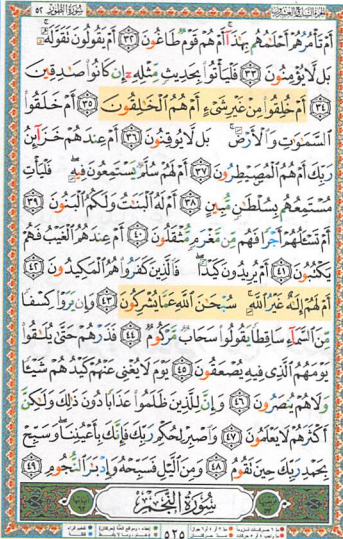 الجزء السابع والعشرون
سورة الطور ٥٢
أَمْ تَأْمُرُهُمْ أَحْلَٰمُهُم بِهَٰذَآ ۚ أَمْ هُمْ قَوْمٌ طَاغُونَ ٣٢ أَمْ يَقُولُونَ تَقَوَّلَهُۥ ۚ
بَل لَّا يُؤْمِنُونَ ٣٣ فَلْيَأْتُوا۟ بِحَدِيثٍ مِّثْلِهِۦٓ إِن كَانُوا۟ صَٰدِقِينَ
٣٤ أَمْ خُلِقُوا۟ مِنْ غَيْرِ شَىْءٍ أَمْ هُمُ ٱلْخَٰلِقُونَ ٣٥ أَمْ خَلَقُوا۟
ٱلسَّمَٰوَٰتِ وَٱلْأَرْضَ ۚ بَل لَّا يُوقِنُونَ ٣٦ أَمْ عِندَهُمْ خَزَآئِنُ
رَبِّكَ أَمْ هُمُ ٱلْمُصَۣيْطِرُونَ ٣٧ أَمْ لَهُمْ سُلَّمٌ يَسْتَمِعُونَ فِيهِ ۖ فَلْيَأْتِ
مُسْتَمِعُهُم بِسُلْطَٰنٍ مُّبِينٍ ٣٨ أَمْ لَهُ ٱلْبَنَٰتُ وَلَكُمُ ٱلْبَنُونَ ٣٩
أَمْ تَسْـَٔلُهُمْ أَجْرًا فَهُم مِّن مَّغْرَمٍ مُّثْقَلُونَ ٤٠ أَمْ عِندَهُمُ ٱلْغَيْبُ فَهُمْ
يَكْتُبُونَ ٤١ أَمْ يُرِيدُونَ كَيْدًا ۖ فَٱلَّذِينَ كَفَرُوا۟ هُمُ ٱلْمَكِيدُونَ ٤٢
أَمْ لَهُمْ إِلَٰهٌ غَيْرُ ٱللَّهِ ۚ سُبْحَٰنَ ٱللَّهِ عَمَّا يُشْرِكُونَ ٤٣ وَإِن يَرَوْا۟ كِسْفًا
مِّنَ ٱلسَّمَآءِ سَاقِطًا يَقُولُوا۟ سَحَابٌ مَّرْكُومٌ ٤٤ فَذَرْهُمْ حَتَّىٰ يُلَٰقُوا۟
يَوْمَهُمُ ٱلَّذِى فِيهِ يُصْعَقُونَ ٤٥ يَوْمَ لَا يُغْنِى عَنْهُمْ كَيْدُهُمْ شَيْـًٔا
وَلَا هُمْ يُنصَرُونَ ٤٦ وَإِنَّ لِلَّذِينَ ظَلَمُوا۟ عَذَابًا دُونَ ذَٰلِكَ وَلَٰكِنَّ
أَكْثَرَهُمْ لَا يَعْلَمُونَ ٤٧ وَٱصْبِرْ لِحُكْمِ رَبِّكَ فَإِنَّكَ بِأَعْيُنِنَا ۖ وَسَبِّحْ
بِحَمْدِ رَبِّكَ حِينَ تَقُومُ ٤٨ وَمِنَ ٱلَّيْلِ فَسَبِّحْهُ وَإِدْبَٰرَ ٱلنُّجُومِ ٤٩
سُورَةُ النَّجْمِ
٥٢٥